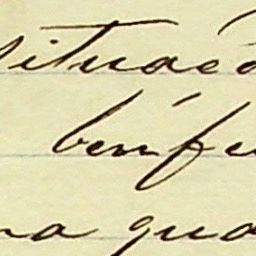 situaçã
bemfe
na qua